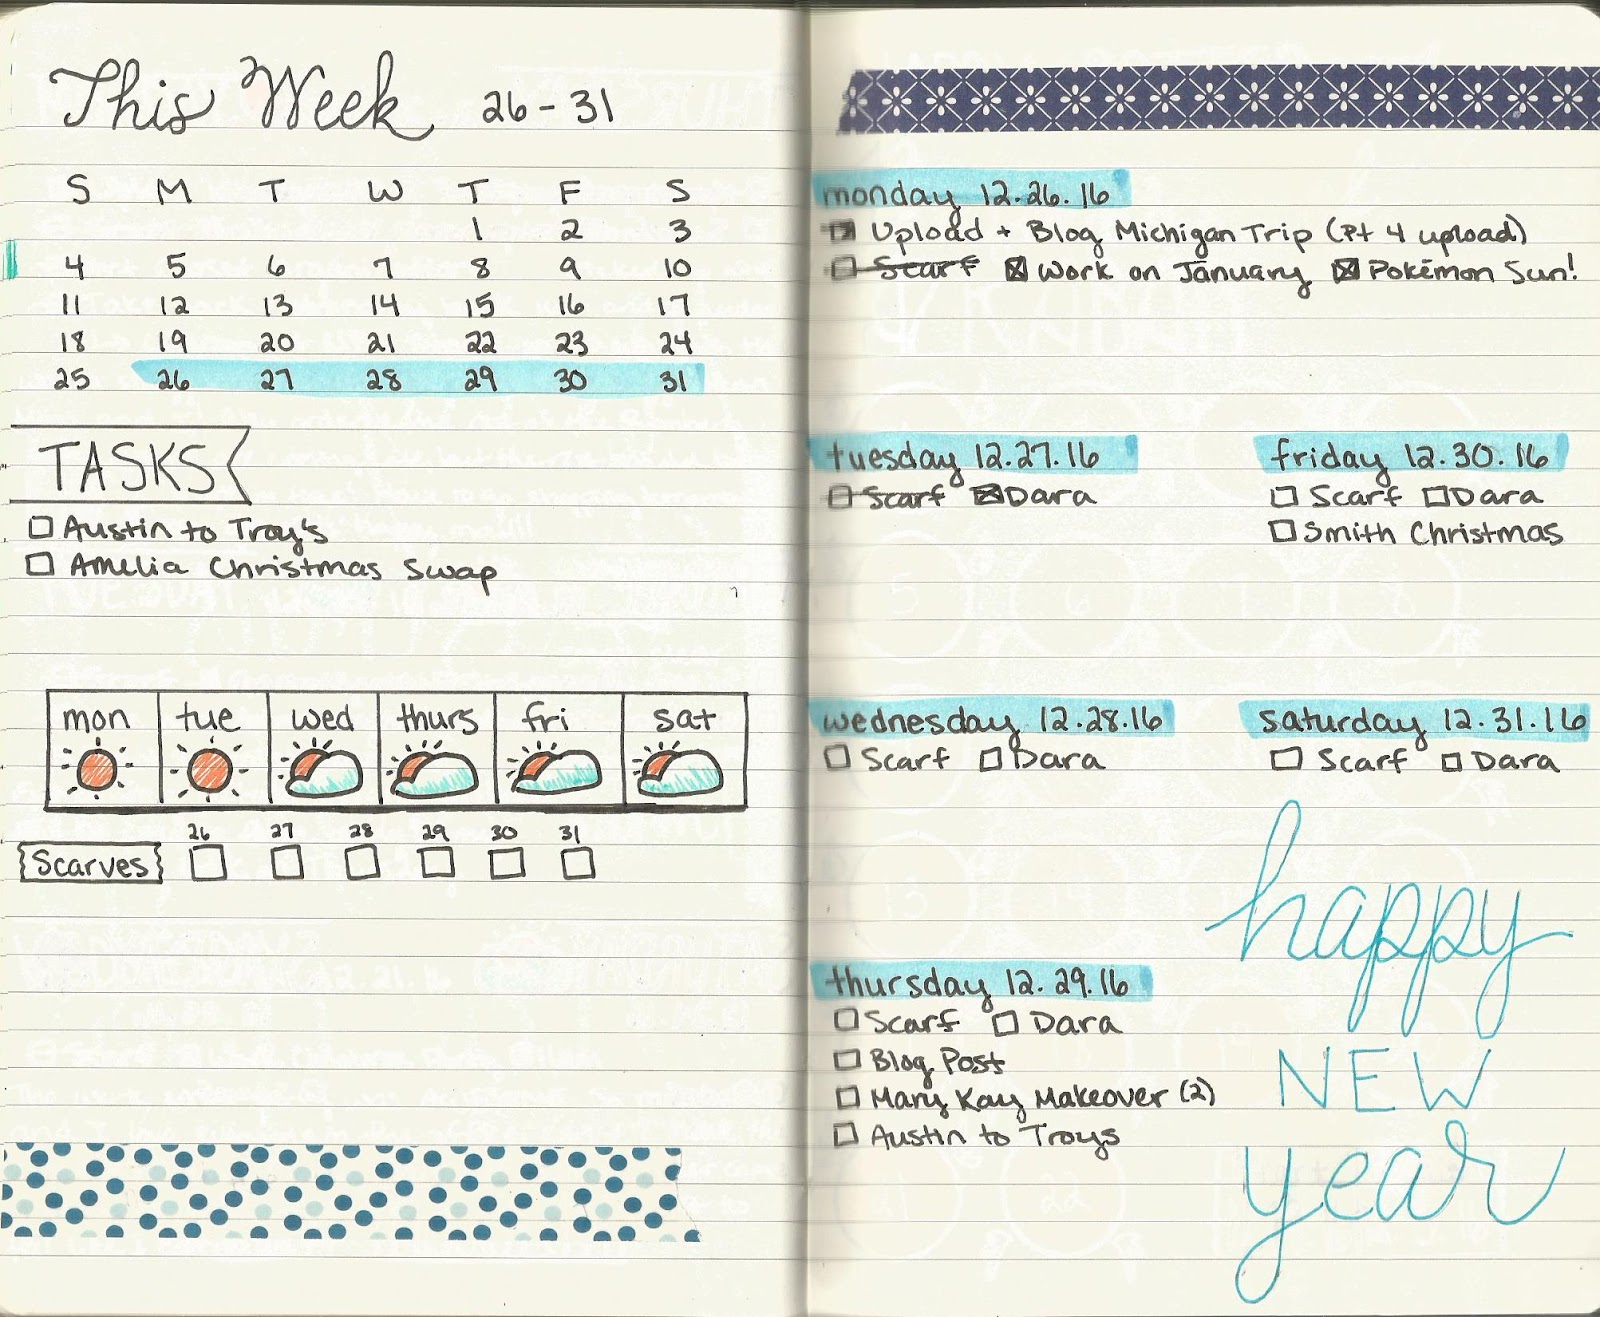 This Week 26 - 31
S M T W T F S
1 2 3
4 5 6 7 8 9 10
11 12 13 14 15 16 17
18 19 20 21 22 23 24
25 26 27 28 29 30 31
TASKS
Austin to Troy's
Amelia Christmas Swap
mon tue wed thurs fri sat
26 27 28 29 30 31
Scarves
monday 12.26.16
Upload + Blog Michigan Trip (Pt 4 upload)
Scarf Work on January Pokémon Sun!
tuesday 12.27.16
Scarf Dara
wednesday 12.28.16
Scarf Dara
thursday 12.29.16
Scarf Dara
Blog Post
Mary Kay Makeover (2)
Austin to Troys
friday 12.30.16
Scarf Dara
Smith Christmas
saturday 12.31.16
Scarf Dara
happy
NEW
year